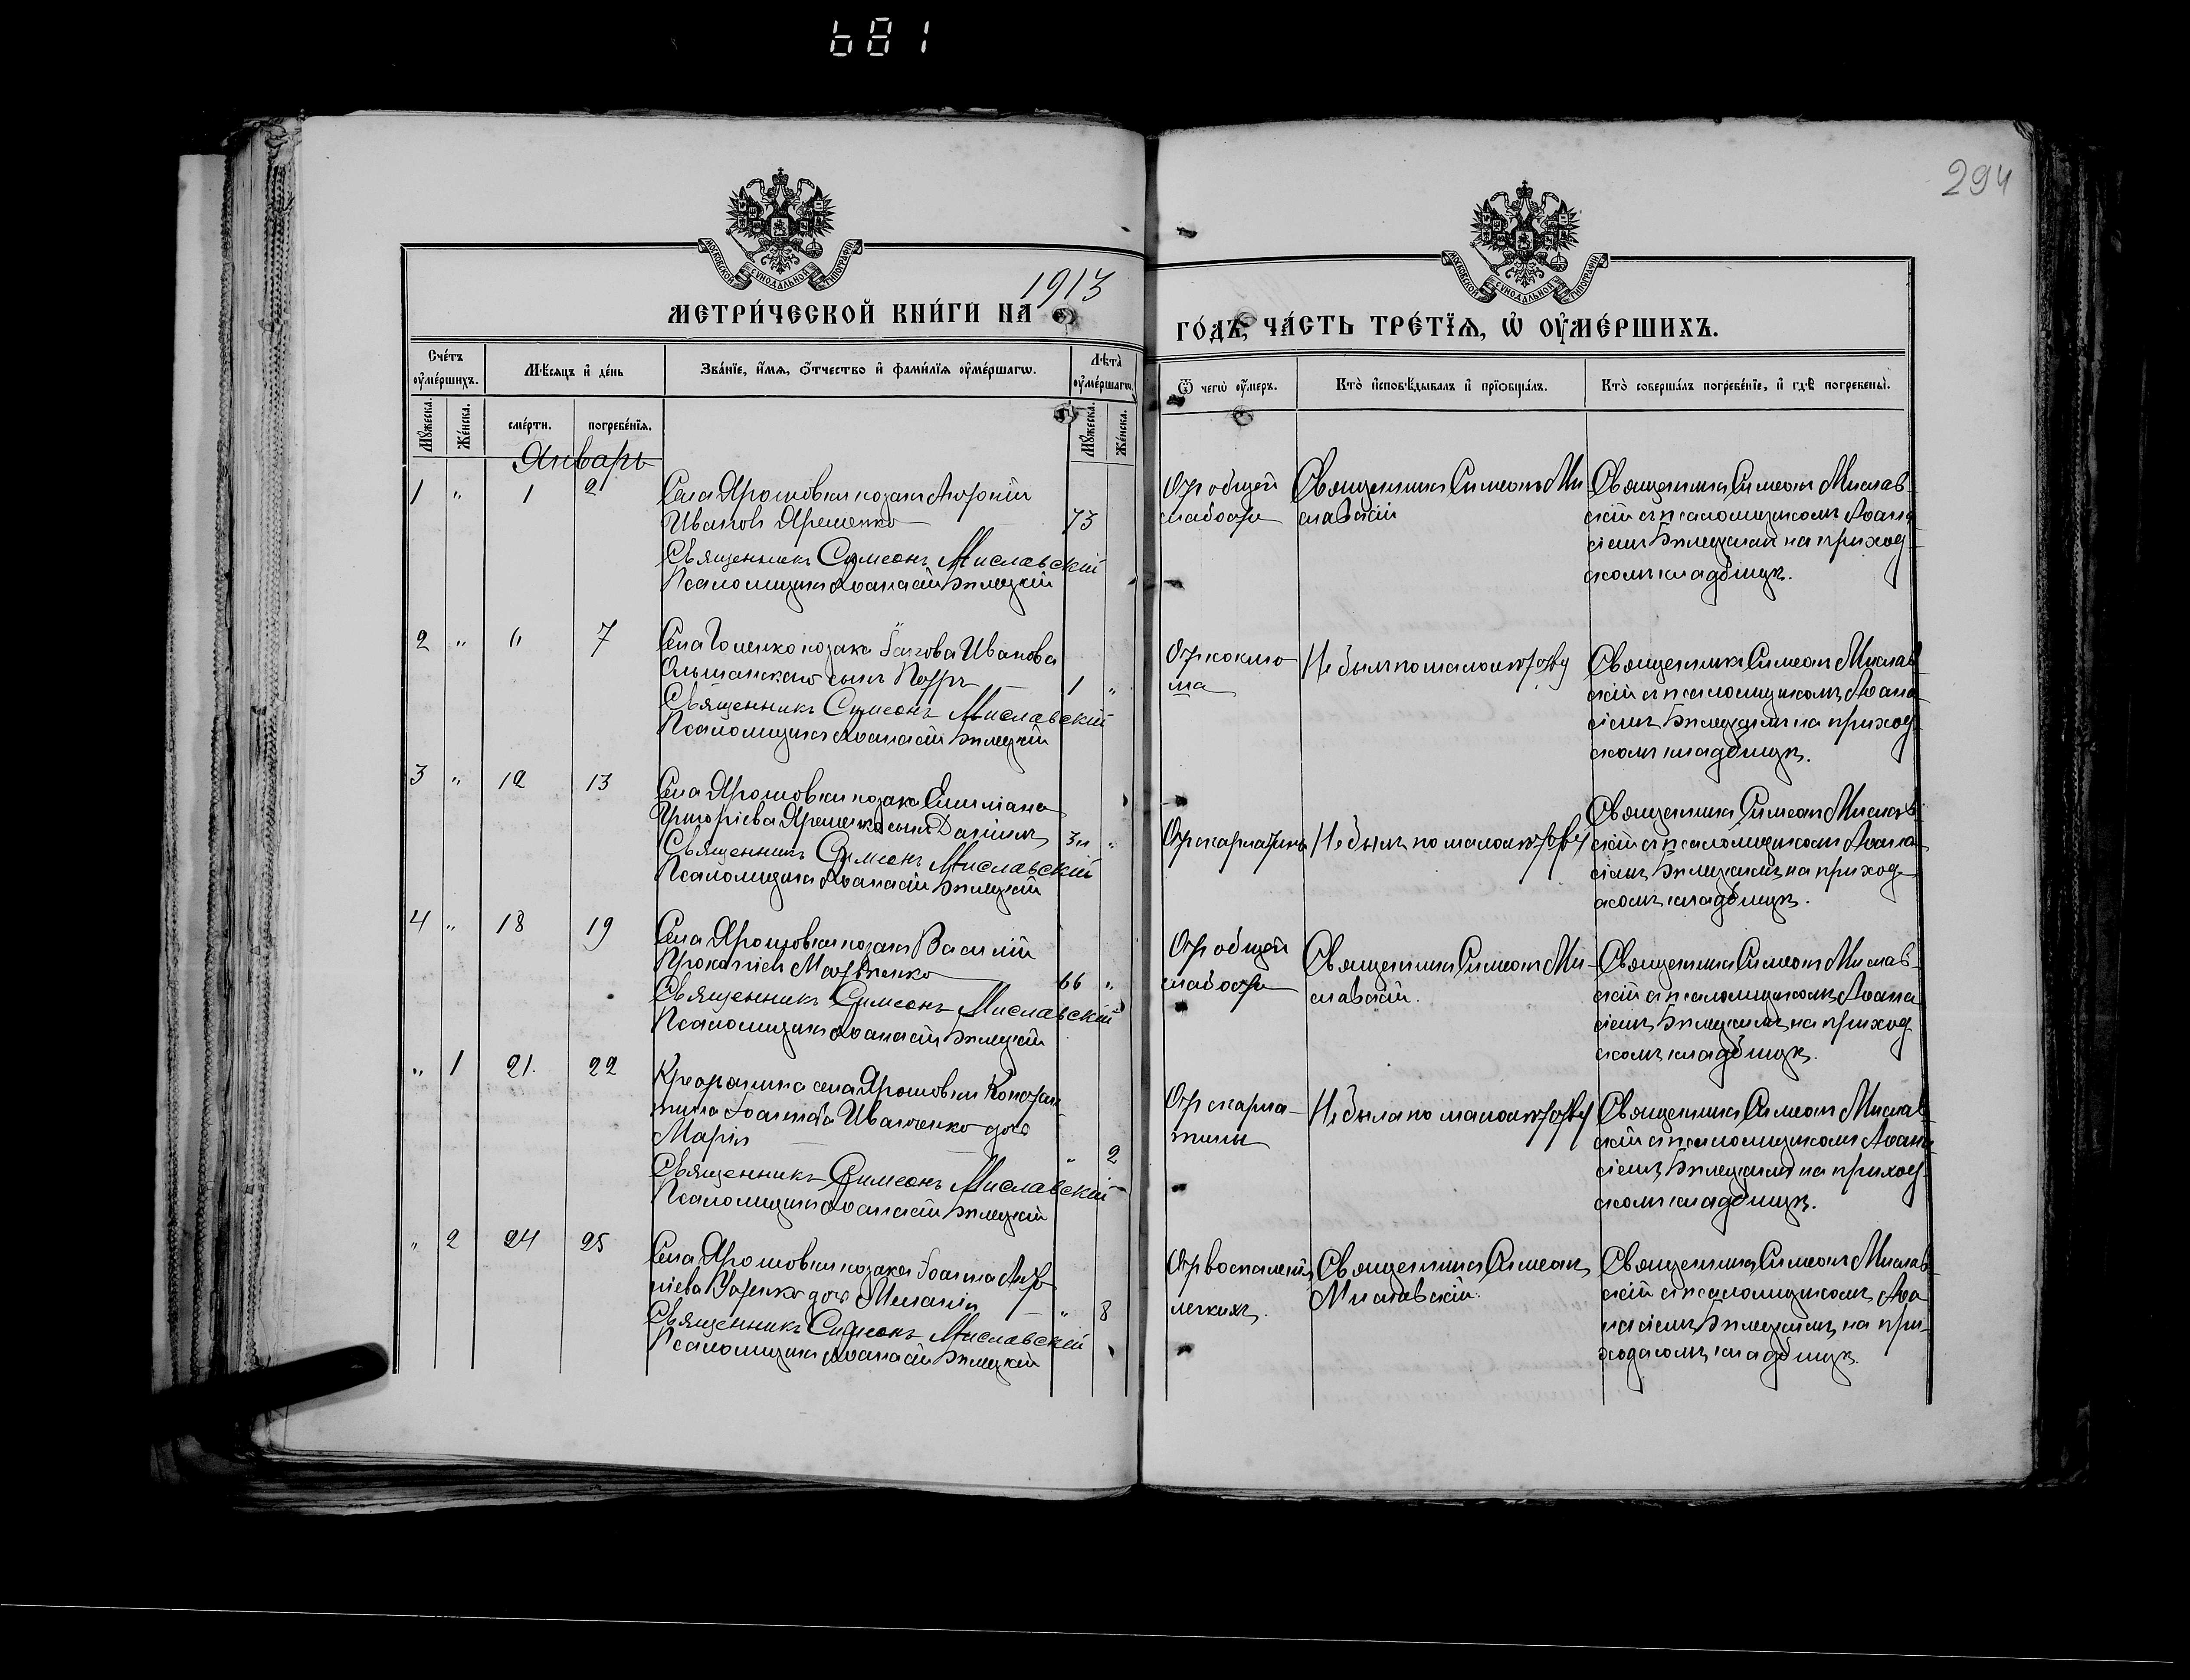 681
294
МОСКОВСКОЙ СѴНОДАЛЬНОЙ ТИПОГРАФІИ
МОСКОВСКОЙ СѴНОДАЛЬНОЙ ТИПОГРАФІИ
МЕТРИ́ЧЕСКОЙ КНИ́ГИ НА 1913
ГО́ДЪ, ЧА́СТЬ ТРЕ́ТЇѦ, Ѽ ОУ҆МЕ́РШИХЪ.
Сче́тъ оу҆ме́ршихъ.
Мѣ́сѧцъ и҆ де́нь
Зва́нїе, и҆́мѧ, ѻ҆́тчество и҆ фами́лїѧ оу҆ме́ршагѡ.
Лѣ́та оу҆ме́ршагѡ.
Ѿ чегѡ̀ оу҆́меръ.
Кто̀ и҆сповѣ́дывалъ и҆ прїѡбща́лъ.
Кто̀ соверша́лъ погребе́нїе, и҆ гдѣ̀ погребены̀.
Мꙋ́жеска.
Же́нска.
сме́рти.
погребе́нїѧ.
Мꙋ́жеска.
Же́нска.
Январь
1 " 1 2
Села Ярошовки козакъ
Ивановъ Яременко 73
Священникъ Симеонъ Миславский
Псаломщикъ Аѳанасій Билецкій
Отъ общей
слабости
Священникъ Симеонъ Ми-
славскій
Священникъ Симеонъ Мислав-
скій съ псаломщикомъ Аѳана
сіемъ Билецкимъ на приход-
скомъ кладбищѣ.
2 " " 7
Села Голенко козака Іакова Иванова
Ольшанскаго сынъ Петръ 1 "
Священникъ Симеонъ Миславский
Псаломщикъ Аѳанасій Билецкій
Отъ коклю
ша
Не былъ по малолѣтству
Священникъ Симеонъ Мислав
скій съ псаломщикомъ Аѳана
сіемъ Билецкимъ на приход-
скомъ кладбищѣ.
3 " 12 13
Села Ярошовки козака Емиліана
Григоріева Яременко сынъ Даніилъ "
Священникъ Симеонъ Миславский
Псаломщикъ Аѳанасій Билецкій
Отъ скарлатины
Не былъ по малолѣтству
Священникъ Симеонъ Мислав
скій съ псаломщикомъ Аѳана
сіемъ Билецкимъ на приход-
скомъ кладбищѣ.
4 " 18 19
Села Ярошовки козакъ Василій
Прокопіевъ Матвѣенко 66 "
Священникъ Симеонъ Миславский
Псаломщикъ Аѳанасій Билецкій
Отъ общей
слабости
Священникъ Симеонъ Ми-
славскій.
Священникъ Симеонъ Мислав-
скій съ псаломщикомъ Аѳана
сіемъ Билецкимъ на приход
скомъ кладбищѣ.
" 1 21. 22
Крестьянина села Ярошовки Констан
тина Іоаннова Иванченко дочь
Марія " 2
Священникъ Симеонъ Миславский
Псаломщикъ Аѳанасій Билецкій
Отъ скарла-
тины
Не была по малолѣтству
Священникъ Симеонъ Мислав
скій съ псаломщикомъ Аѳана
сіемъ Билецкимъ на приход-
скомъ кладбищѣ.
" 2 24 25
Села Ярошовки козака Іоанна
дочь Меланія " 8
Священникъ Симеонъ Миславский
Псаломщикъ Аѳанасій Билецкій
Отъ воспаленія
легкихъ.
Священникъ Симеонъ
Миславскій.
Священникъ Симеонъ Мислав
скій съ псаломщикомъ Аѳа
насіемъ Билецкимъ на при-
ходскомъ кладбищѣ.